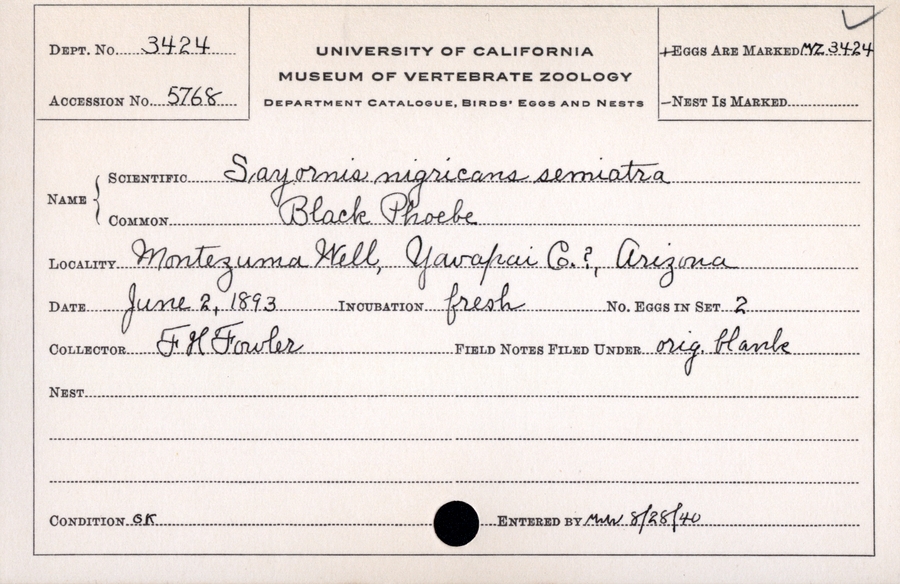 Dept. No. 3424
Accession No. 5768
UNIVERSITY OF CALIFORNIA
MUSEUM OF VERTEBRATE ZOOLOGY
Department Catalogue, Birds' Eggs and Nests
+Eggs Are Marked MVZ 3424
–Nest Is Marked
Name
Scientific Sayornis nigricans semiatra
Common Black Phoebe
Locality Montezuma Well, Yavapai Co.?, Arizona
Date June 2, 1893 Incubation fresh No. Eggs in Set 2
Collector F H Fowler Field Notes Filed Under orig. blank
Nest
Condition OK Entered by 8/28/40